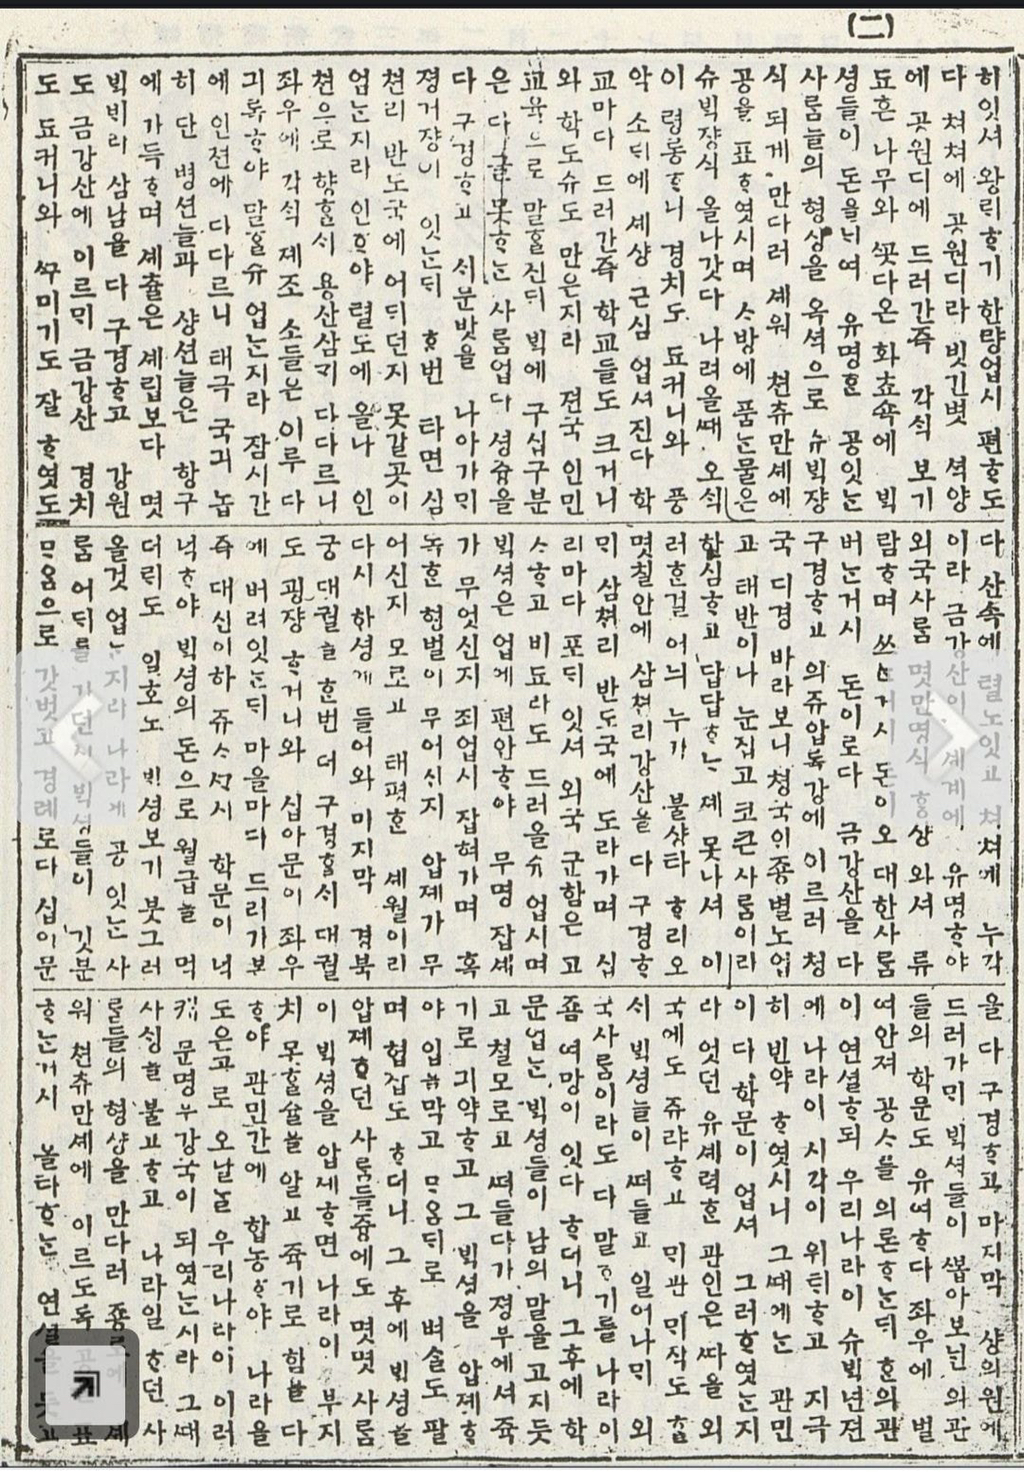 (二)
히잇셔 왕ᄅᆡᄒᆞ기 한량업시 편ᄒᆞ도
다 쳐쳐에 공원디라 빗긴볏 셕양
에 공원디에 드러간즉 각ᄉᆡᆨ 보기
됴흔 나무와 ᄭᅩᆺ다온 화쵸쇽에 ᄇᆡᆨ
셩들이 돈을ᄂᆡ여 유명ᄒᆞᆫ 공잇ᄂᆞᆫ
사ᄅᆞᆷ들의 형샹을 옥셕으로 슈ᄇᆡᆨ쟝
식 되게 만다러 셰워 쳔츄만셰에
공을 표ᄒᆞ엿시며 ᄉᆞ방에 품ᄂᆞᆫ물은
슈ᄇᆡᆨ쟝식 올나갓다 나려올ᄯᅢ 오ᄉᆡᆨ
이 령롱ᄒᆞ니 경치도 됴커니와 풍
악 소ᄅᆡ에 셰샹 근심 업셔진다 학
교마다 드러간즉 학교들도 크거니
와 학도슈도 만은지라 젼국 인민
교육으로 말ᄒᆞᆯ진ᄃᆡ ᄇᆡᆨ에 구십구분
은 다 글 못ᄒᆞᄂᆞᆫ 사ᄅᆞᆷ업다 셩즁을
다 구경ᄒᆞ고 셔문밧을 나아가ᄆᆡ
졍거쟝이 잇ᄂᆞᆫᄃᆡ ᄒᆞᆫ번 타면 삼
쳔리 반도국에 어ᄃᆡ던지 못갈곳이
업ᄂᆞᆫ지라 인ᄒᆞ야 렬도에 올나 인
쳔으로 향ᄒᆞᆯᄉᆡ 용산삼ᄀᆡ 다다르니
좌우에 각ᄉᆡᆨ 졔조 소들은 이루 다
긔록ᄒᆞ야 말ᄒᆞᆯ슈 업ᄂᆞᆫ지라 잠시간
에 인쳔에 다다르니 태극 국긔 놉
히 단 병션들과 샹션들은 항구
에 가득ᄒᆞ며 셰츌은 셰립보다 몃
ᄇᆡᆨᄇᆡ라 삼남을 다 구경ᄒᆞ고 강원
도 금강산에 이르ᄆᆡ 금강산 경치
도 됴커니와 ᄭᅮ미기도 잘 ᄒᆞ엿도
다 산속에 렬노잇고 쳐쳐에 누각
이라 금강산이 셰계에 유명ᄒᆞ야
외국사ᄅᆞᆷ 몃만명식 ᄒᆞᆼ샹 와셔 류
람ᄒᆞ며 쓰ᄂᆞᆫ거시 돈이오 대한사ᄅᆞᆷ
버ᄂᆞᆫ거시 돈이로다 금강산을 다
구경ᄒᆞ고 의쥬압록강에 이르러 쳥
국 디경 바라보니 쳥국의죵별노업
고 태반이나 눈집고코큰사ᄅᆞᆷ이라
한심ᄒᆞ고 답답ᄒᆞᄂᆞᆫ 졔 못나셔 이
러ᄒᆞᆫ걸 어늬 누가 불샹타 ᄒᆞ리오
몃칠안에 삼쳔리강산을 다 구경ᄒᆞ
ᄆᆡ 삼쳔리 반도국에 도라가며 십
리마다 포ᄃᆡ 잇셔 외국 군함은 고
ᄉᆞᄒᆞ고 비됴라도 드러올슈 업시며
ᄇᆡᆨ셩은 업에 편안ᄒᆞ야 무명 잡셰
가 무엇신지 죄업시 잡혀가며 혹
독ᄒᆞᆫ 형벌이 무어신지 압졔가 무
어신지 모로고 태평ᄒᆞᆫ 셰월이라
다시 하셩에 들어와 미지막 경복
궁 대궐을 ᄒᆞᆫ번 더 구경ᄒᆞᆯᄉᆡ 대궐
도 굉쟝 ᄒᆞ거니와 십아문이 좌우
에 버려잇ᄂᆞᆫᄃᆡ 마을마다 드러가본
즉 대신이하 쥬ᄉᆞ셔지 학문이 넉
넉ᄒᆞ야 ᄇᆡᆨ셩의 돈으로 월급을 먹
더ᄅᆡ도 일호노 ᄇᆡᆨ셩보기 붓그러
올것 업ᄂᆞᆫ지라 나라에 공 잇ᄂᆞᆫ 사
ᄅᆞᆷ 어ᄃᆡ를 가던지 ᄇᆡᆨ셩들이 깃분
ᄆᆞᄋᆞᆷ으로 갓벗고 경례로다 십이문
을 다 구경ᄒᆞ고 마지막 샹의원에
드러가ᄆᆡ ᄇᆡᆨ셩들이 ᄲᅩᆸ아보닌 의관
들의 학문도 유여ᄒᆞ다 좌우에 벌
여안져 공ᄉᆞ을 의론ᄒᆞᄂᆞᆫᄃᆡ ᄒᆞᆫ의관
이 연셜ᄒᆞ되 우리나라이 슈ᄇᆡᆨ년젼
에 나라이 시각이 위ᄐᆡᄒᆞ고 지극
히 빈약 ᄒᆞ엿시니 그ᄯᅢ에ᄂᆞᆫ 관민
이 다 학문이 업셔 그러ᄒᆞ엿ᄂᆞᆫ지
라 엇던 유셰력ᄒᆞᆫ 관인은 ᄯᅡ을 외
국에도 쥬랴ᄒᆞ고 ᄆᆡ관 ᄆᆡ작도 ᄒᆞᆯ
ᄉᆡ ᄇᆡᆨ셩들이 ᄯᅥ들고 일어나ᄆᆡ 외
국사ᄅᆞᆷ이라도 다 말ᄒᆞ기를 나라이
죰 여망이 잇다 ᄒᆞ더니 그후에 학
문업ᄂᆞᆫ ᄇᆡᆨ셩들이 남의 말을 고지듯
고 쳘모로고 ᄯᅥ들다가 졍부에셔 쥭
기로 긔약ᄒᆞ고 그 ᄇᆡᆨ셩을 압졔ᄒᆞ
야 입을막고 ᄆᆞᄋᆞᆷᄃᆡ로 벼슬도 팔
며 협잡도 ᄒᆞ더니 그 후에 ᄇᆡᆨ셩을
압졔ᄒᆞ던 사ᄅᆞᆷ들즁에도 몃몃 사ᄅᆞᆷ
이 ᄇᆡᆨ셩을 압졔ᄒᆞ면 나라이 부지
치 못ᄒᆞᆯ쥴을 알고 쥭기로 힘을 다
ᄒᆞ야 관민간에 합동ᄒᆞ야 나라을
도은고로 오날날 우리나라이 이러
케 문명부강국이 되엿ᄂᆞᆫ시라 그ᄯᅢ
사싱을 불고ᄒᆞ고 나라일 ᄒᆞ던 사
ᄅᆞᆷ들의 형샹을 만다러 죵로에 셰
워 쳔츄만셰에 이르도록 공을 표
ᄒᆞᄂᆞᆫ거시 올타ᄒᆞᄂᆞᆫ 연셜을 듯고